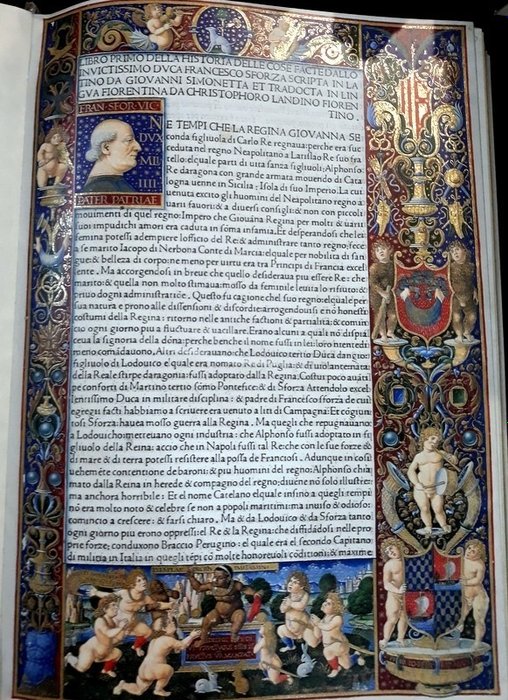 LIBRO PRIMO DELLA HISTORIA DELLE COSE FACTE DALLO
INVICTISSIMO DVCA FRANCESCO SFORZA SCRIPTA IN LA
TINO DA GIOVANNI SIMONETTA ET TRADOCTA IN LIN
GVA FIORENTINA DA CHRISTOPHORO LANDINO FIOREN
TINO.
FRAN·SFOR·VIC
DVX
MLI
IIII
PATER PATRIAE
NE TEMPI CHE LA REGINA GIOVANNA SE
conda figliuola di Carlo Re regnaua: perche era suc
ceduta nel regno Neapolitano a Latislao Re suo fra
tello: elquale parti di uita sanza figliuoli: Alphonso
Re daragona con grande armata mouendo di Cata
logna uenne in Sicilia: Isola di suo Imperio. La cui
uenuta excito gli huomini del Neapolitano regno a
uarii fauori: & a diuersi consigli: & non con piccoli
mouimenti di quel regno: Impero che Giouána Regina per molti & uarii
suoi impudichi amori era caduta in sóma infamia. Et desperandosi che lei
femina potessi adempiere lofficio del Re: & administrare tanto regno: fece
a se marito Iacopo di Nerbona Conte di Marcia: elquale per nobilita di san
gue: & belleza di corpo: ne meno per uirtu era tra Principi di Francia excel
lente. Ma accorgendosi in breue che quello desideraua piu essere Re: che
marito: & quella non molto stimaua: mosso da feminile leuita lo rifiuto: &
priuo dogni administratióe. Questo fu cagione chel suo regno: elquale per
sua natura e prono alle dissensioni & discordie: arrogendouisi e nó honesti
costumi della Regina: ritorno nelle antiche factioni & partialita: & comin
cio ogni giorno piu a fluctuare & uacillare. Erano alcuni a quali nó dispia
ceua la signoria della dóna: perche benche il nome fussi in lei: loro intendi
meno comádauono. Altri desiderauano: che Lodouico tertio Duca dangio:
figliuolo di Lodouico e quale era nomato Re di Puglia: & di uiolante nata
della Reale stirpe daragona: fussi adoptato dalla Regina. Costui poco auáti
pe conforti di Martino tertio sómo Pontefice: & di Sforza Attendolo excel
lentissimo Duca in militare disciplina: & padre di Francesco sforza de cui
egregii facti habbiamo a scriuere era uenuto a liti di Campagna: Et cógiun
tosi Sforza: hauea mosso guerra alla Regina. Ma quegli che repugnauano
a Lodouico: metteuano ogni industria: che Alphonso fussi adoptato in fi
gliuolo della Reina: accio che in Napoli fussi tal Re: che con le sue forze &
di mare & di terra potessi resistere alla possa de Franciosi. Adunque in cosi
uehemète contentione de baroni: & piu huomini del regno: Alphonso chia
mato dalla Reina in herede & compagno del regno: diuéne nó solo illustre:
ma anchora horribile: Et el nome Catelano elquale infino a quegli tempi
nó era molto noto & celebre se non a popoli maritimi: ma inuso & odioso:
comincio a crescere: & farsi chiaro. Ma & da Lodouico & da Sforza tanto
ogni giorno piu erono oppressi el Re & la Regina: che diffidádosi nelle pro
prie forze: conduxono Braccio Perugino: el quale era el secondo Capitano
di militia in Italia in quegli tépi có molte honoreuoli códitioni: & maxime